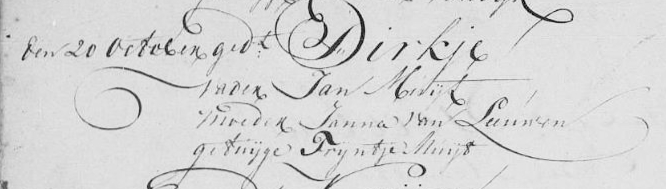 den 20 October ged:t Dirkje
vader Jan Muijt
moeder Janna van Leeuwen
getuijge Tryntje Muijt